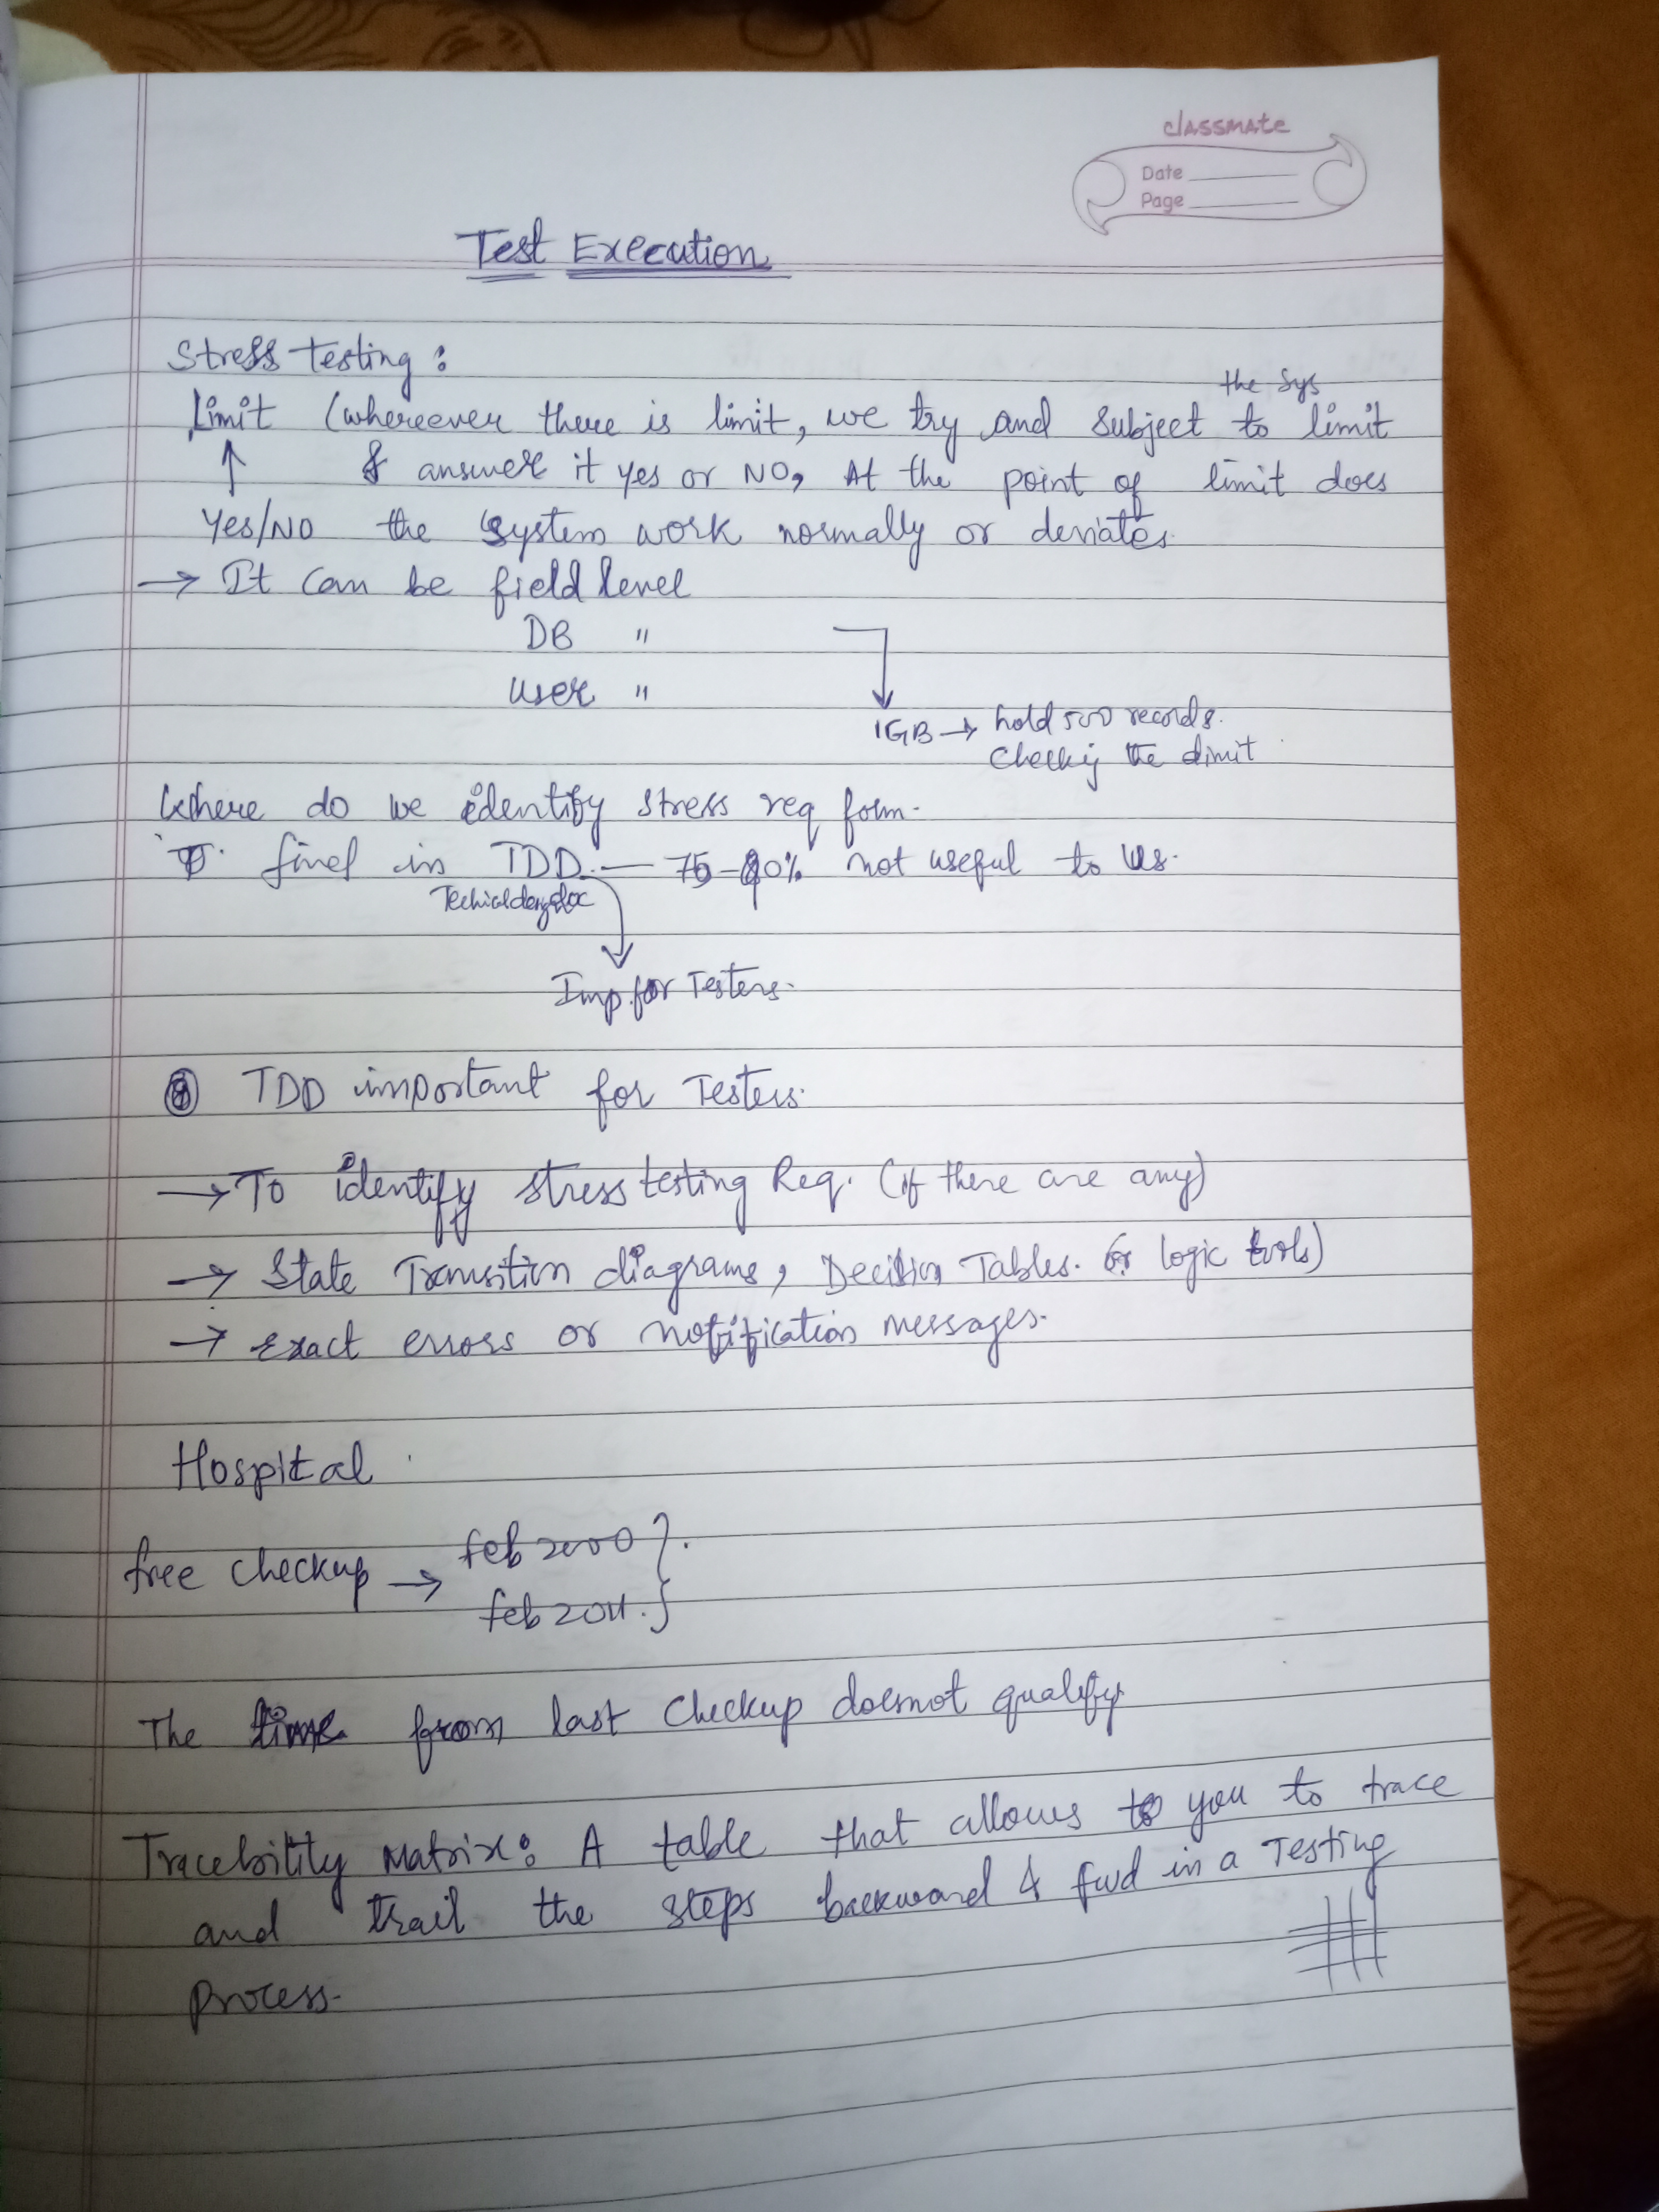 classmate
Date
Page
Test Execution
Stress testing :
the sys
Limit (whereever there is limit, we try and subject to limit
& answer it yes or NO, At the point of limit does
Yes/NO the system work normally or deviates.
→ It can be field level
DB "
user "
1GB → hold 500 records.
Checking the limit
Where do we identify stress req form.
find in TDD. — 75-90% not useful to us.
Imp. for Testers.
TDD important for Testers.
→ To identify stress testing Req. (if there are any)
→ State Transition diagrams, Decision Tables. (or logic tools)
→ exact errors or notification messages.
Hospital
free checkup → feb 2000 }
feb 2011. }
The time from last checkup doesnot qualify
Tracebility Matrix: A table that allows to you to trace
and trail the steps backward & fwd in a Testing
process.